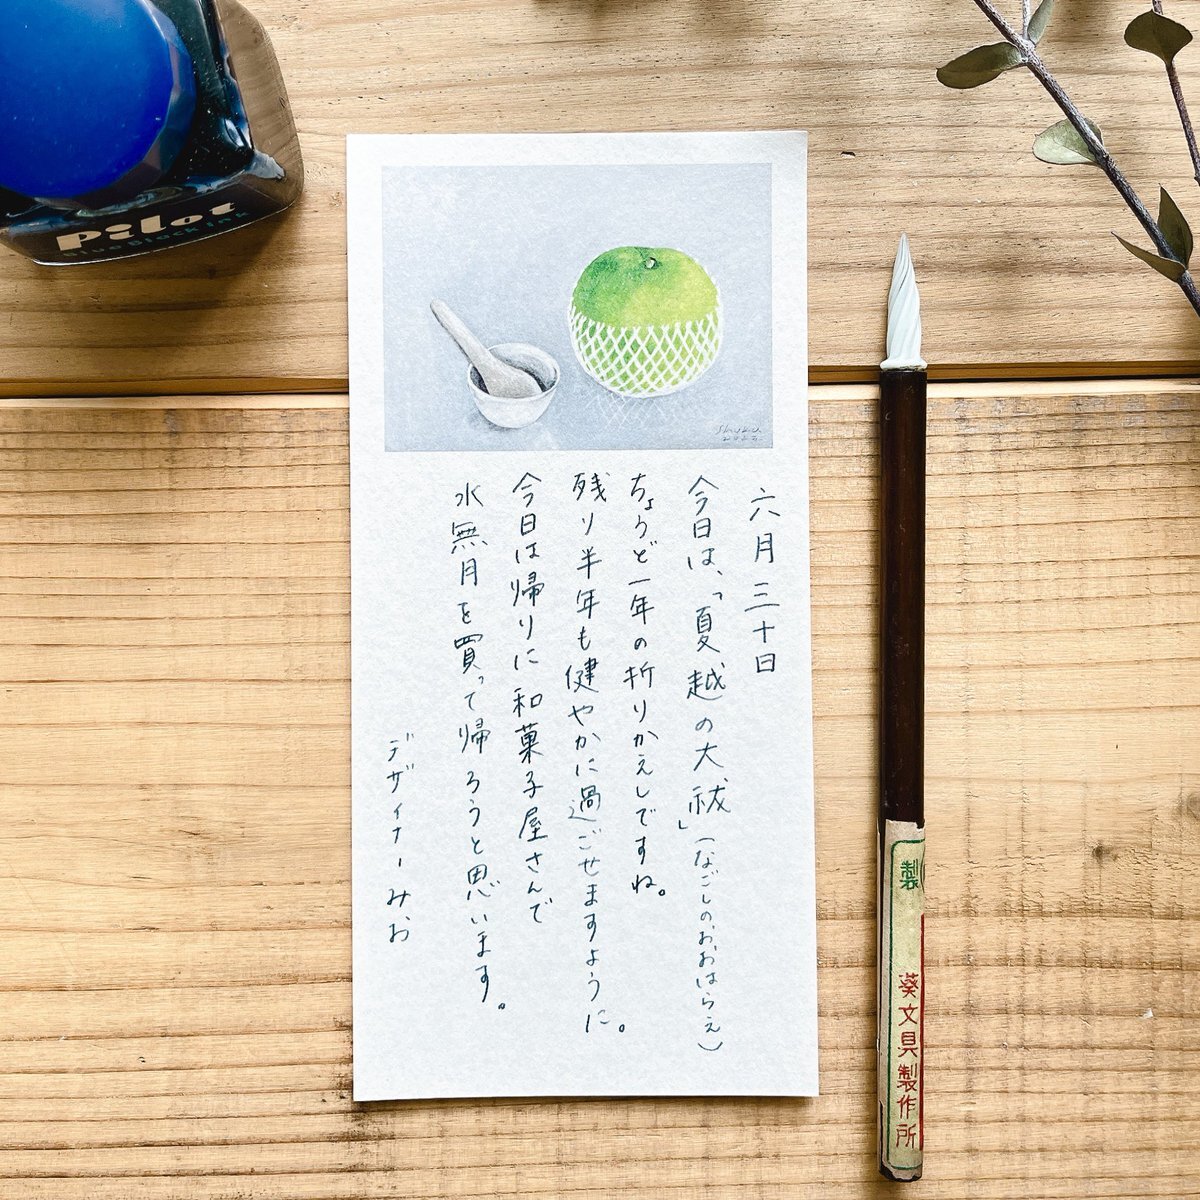 Pilot
Blue Black Ink
六月三十日
今日は、「夏越の大祓」(なごしのおおはらえ)
ちょうど一年の折りかえしですね。
残り半年も健やかに過ごせますように。
今日は帰りに和菓子屋さんで
水無月を買って帰ろうと思います。
デザイナーみお
製
葵文具製作所